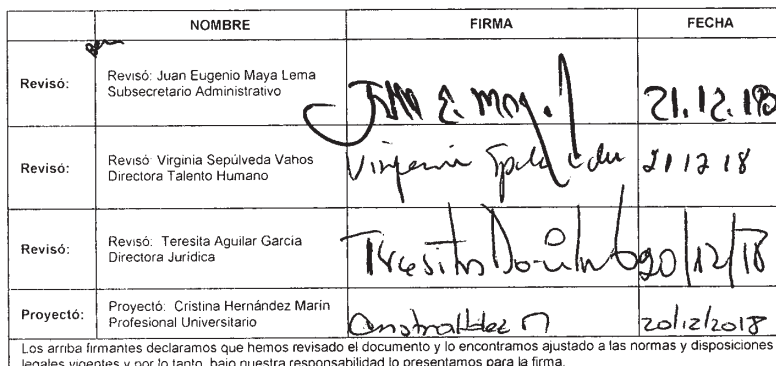 NOMBRE FIRMA FECHA
Revisó: Revisó: Juan Eugenio Maya Lema
Subsecretario Administrativo
21.12.18
Revisó: Revisó: Virginia Sepúlveda Vahos
Directora Talento Humano
Virginia 21 12 18
Revisó: Revisó: Teresita Aguilar García
Directora Jurídica
Teresita 20/12/18
Proyectó: Proyectó: Cristina Hernández Marín
Profesional Universitario
20/12/2018
Los arriba firmantes declaramos que hemos revisado el documento y lo encontramos ajustado a las normas y disposiciones
legales vigentes y por lo tanto, bajo nuestra responsabilidad lo presentamos para la firma.